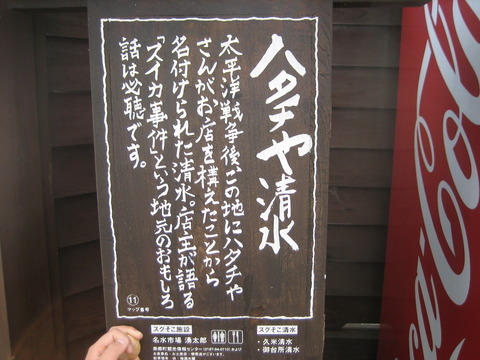 ハタチや清水
太平洋戦争後、この地にハタチや
さんがお店を構えたことから
名付けられた清水。店主が語る
「スイカ事件」という地元のおもしろ
話は必聴です。
⑪
マップ番号
スグそこ施設
名水市場 湧太郎
スグそこ清水
・久米清水
・御台所清水
Coca-Cola